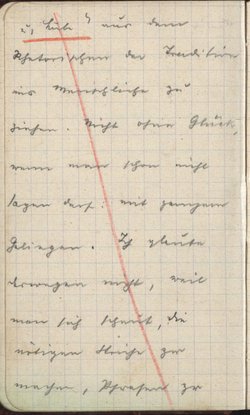 u. Liebe aus dem
Rhetorischen der Tradition
ins Menschliche zu
ziehen. Nicht ohne Glück,
wenn man schon nicht
sagen darf: mit ganzem
Gelingen. Ich glaube
deswegen nicht, weil
man sich scheut, die
nötigen Striche zu
machen, Phrasen zu